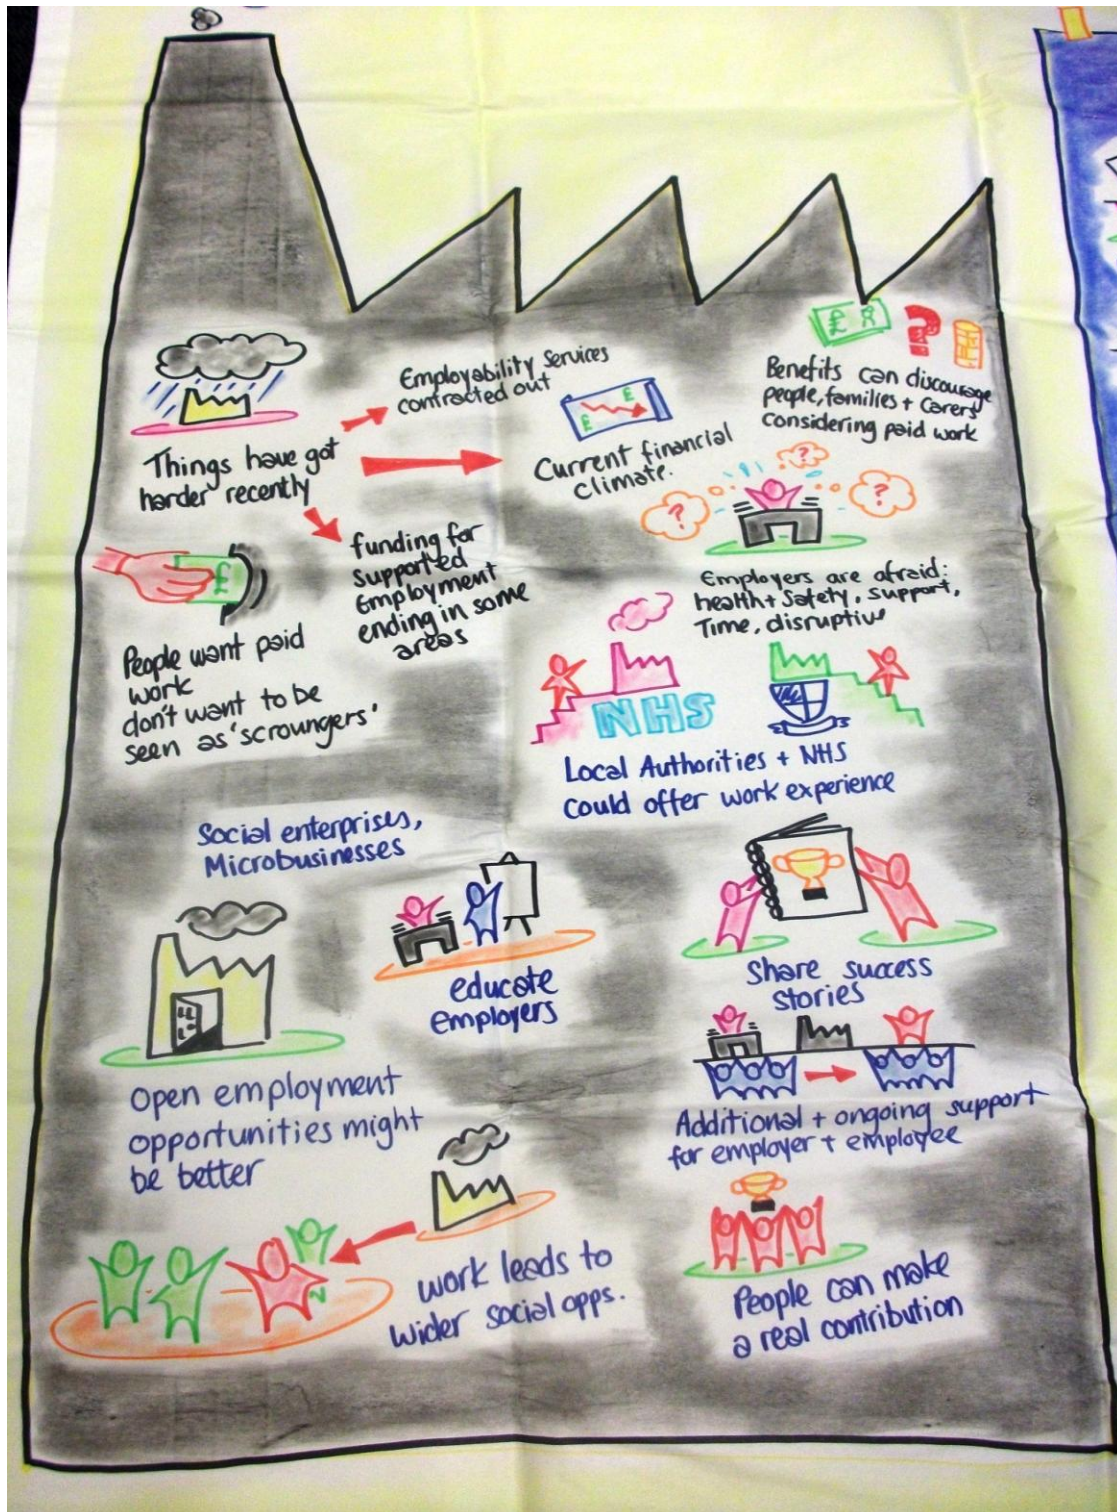 Things have got
harder recently
Employability services
contracted out
£
£
Current financial
climate.
funding for
supported
Employment
ending in some
areas
£
?
Benefits can discourage
people, families + Carers
considering paid work
?
?
?
Employers are afraid:
health + Safety, support,
Time, disruptive
£
People want paid
work
don't want to be
seen as 'scroungers'
NHS
Local Authorities + NHS
could offer work experience
Social enterprises,
Microbusinesses
educate
employers
Share success
stories
Open employment
opportunities might
be better
Additional + ongoing support
for employer + employee
work leads to
wider social opps.
People can make
a real contribution